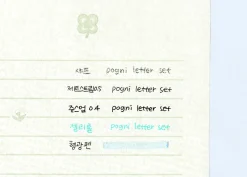 샤프 pogni letter set
제트스트림0.5 pogni letter set
쥬스업 0.4 pogni letter set
젤리롤 pogni letter set
형광펜